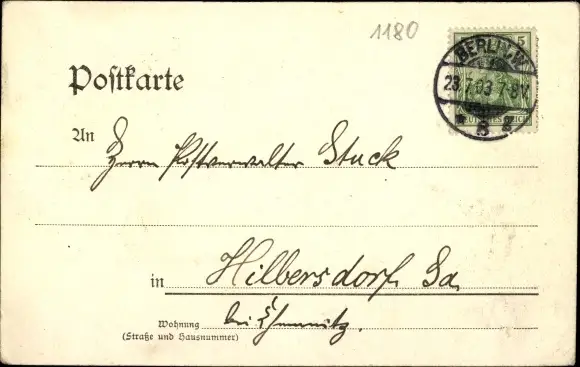 1180
5
BERLIN.W.
23.7.03 7-8V.
DEUTSCHES REICH
* 8 g
Postkarte
An
Herrn Postverwalter Stuck
in Hilbersdorf Sa.
Wohnung bei Chemnitz.
(Straße und Hausnummer)